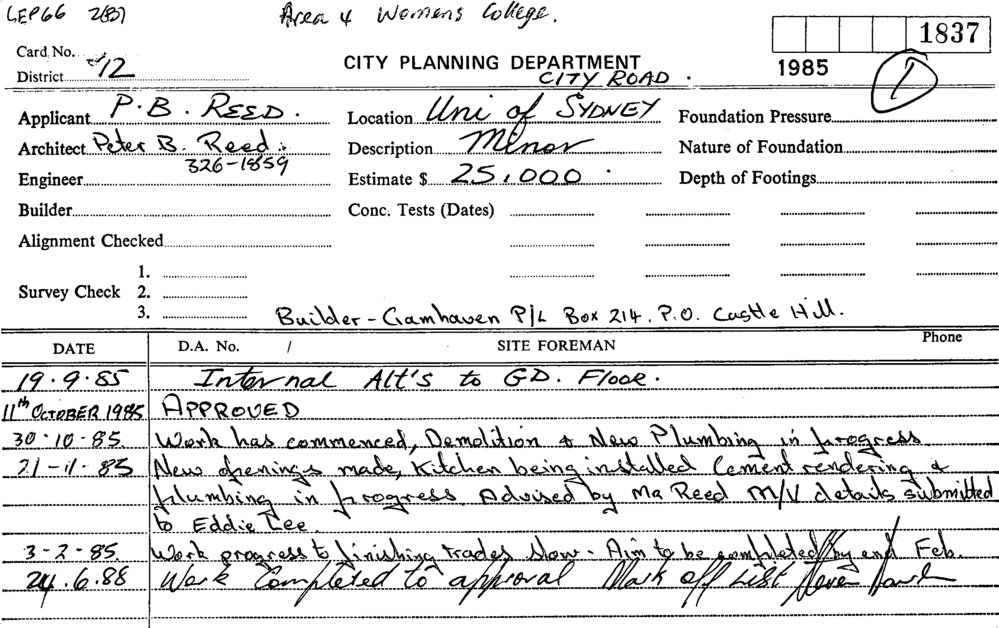 LEP66 2(B) Area 4 Womens College.
1837
Card No.
1985
1
District 12
CITY PLANNING DEPARTMENT
CITY ROAD.
Applicant P.B. REED. Location Uni of SYDNEY Foundation Pressure
Architect Peter B. Reed. Description Minor Nature of Foundation
326-1859
Engineer Estimate $ 25,000. Depth of Footings
Builder Conc. Tests (Dates)
Alignment Checked
1.
Survey Check 2.
3.
Builder - Gamhaven P/L Box 214. P.O. Castle Hill.
DATE D.A. No. / SITE FOREMAN Phone
19.9.85 Internal Alt's to GD. Floor.
11th OCTOBER 1985 APPROVED
30-10-85. Work has commenced, Demolition & New Plumbing in progress.
21-11-85 New openings made, Kitchen being installed Cement rendering &
plumbing in progress. Advised by Mr Reed M/V details submitted
to Eddie Lee.
3-2-85. Work progress to finishing trades slow - Aim to be completed by end Feb.
24.6.88 Work Completed to approval Mark off List